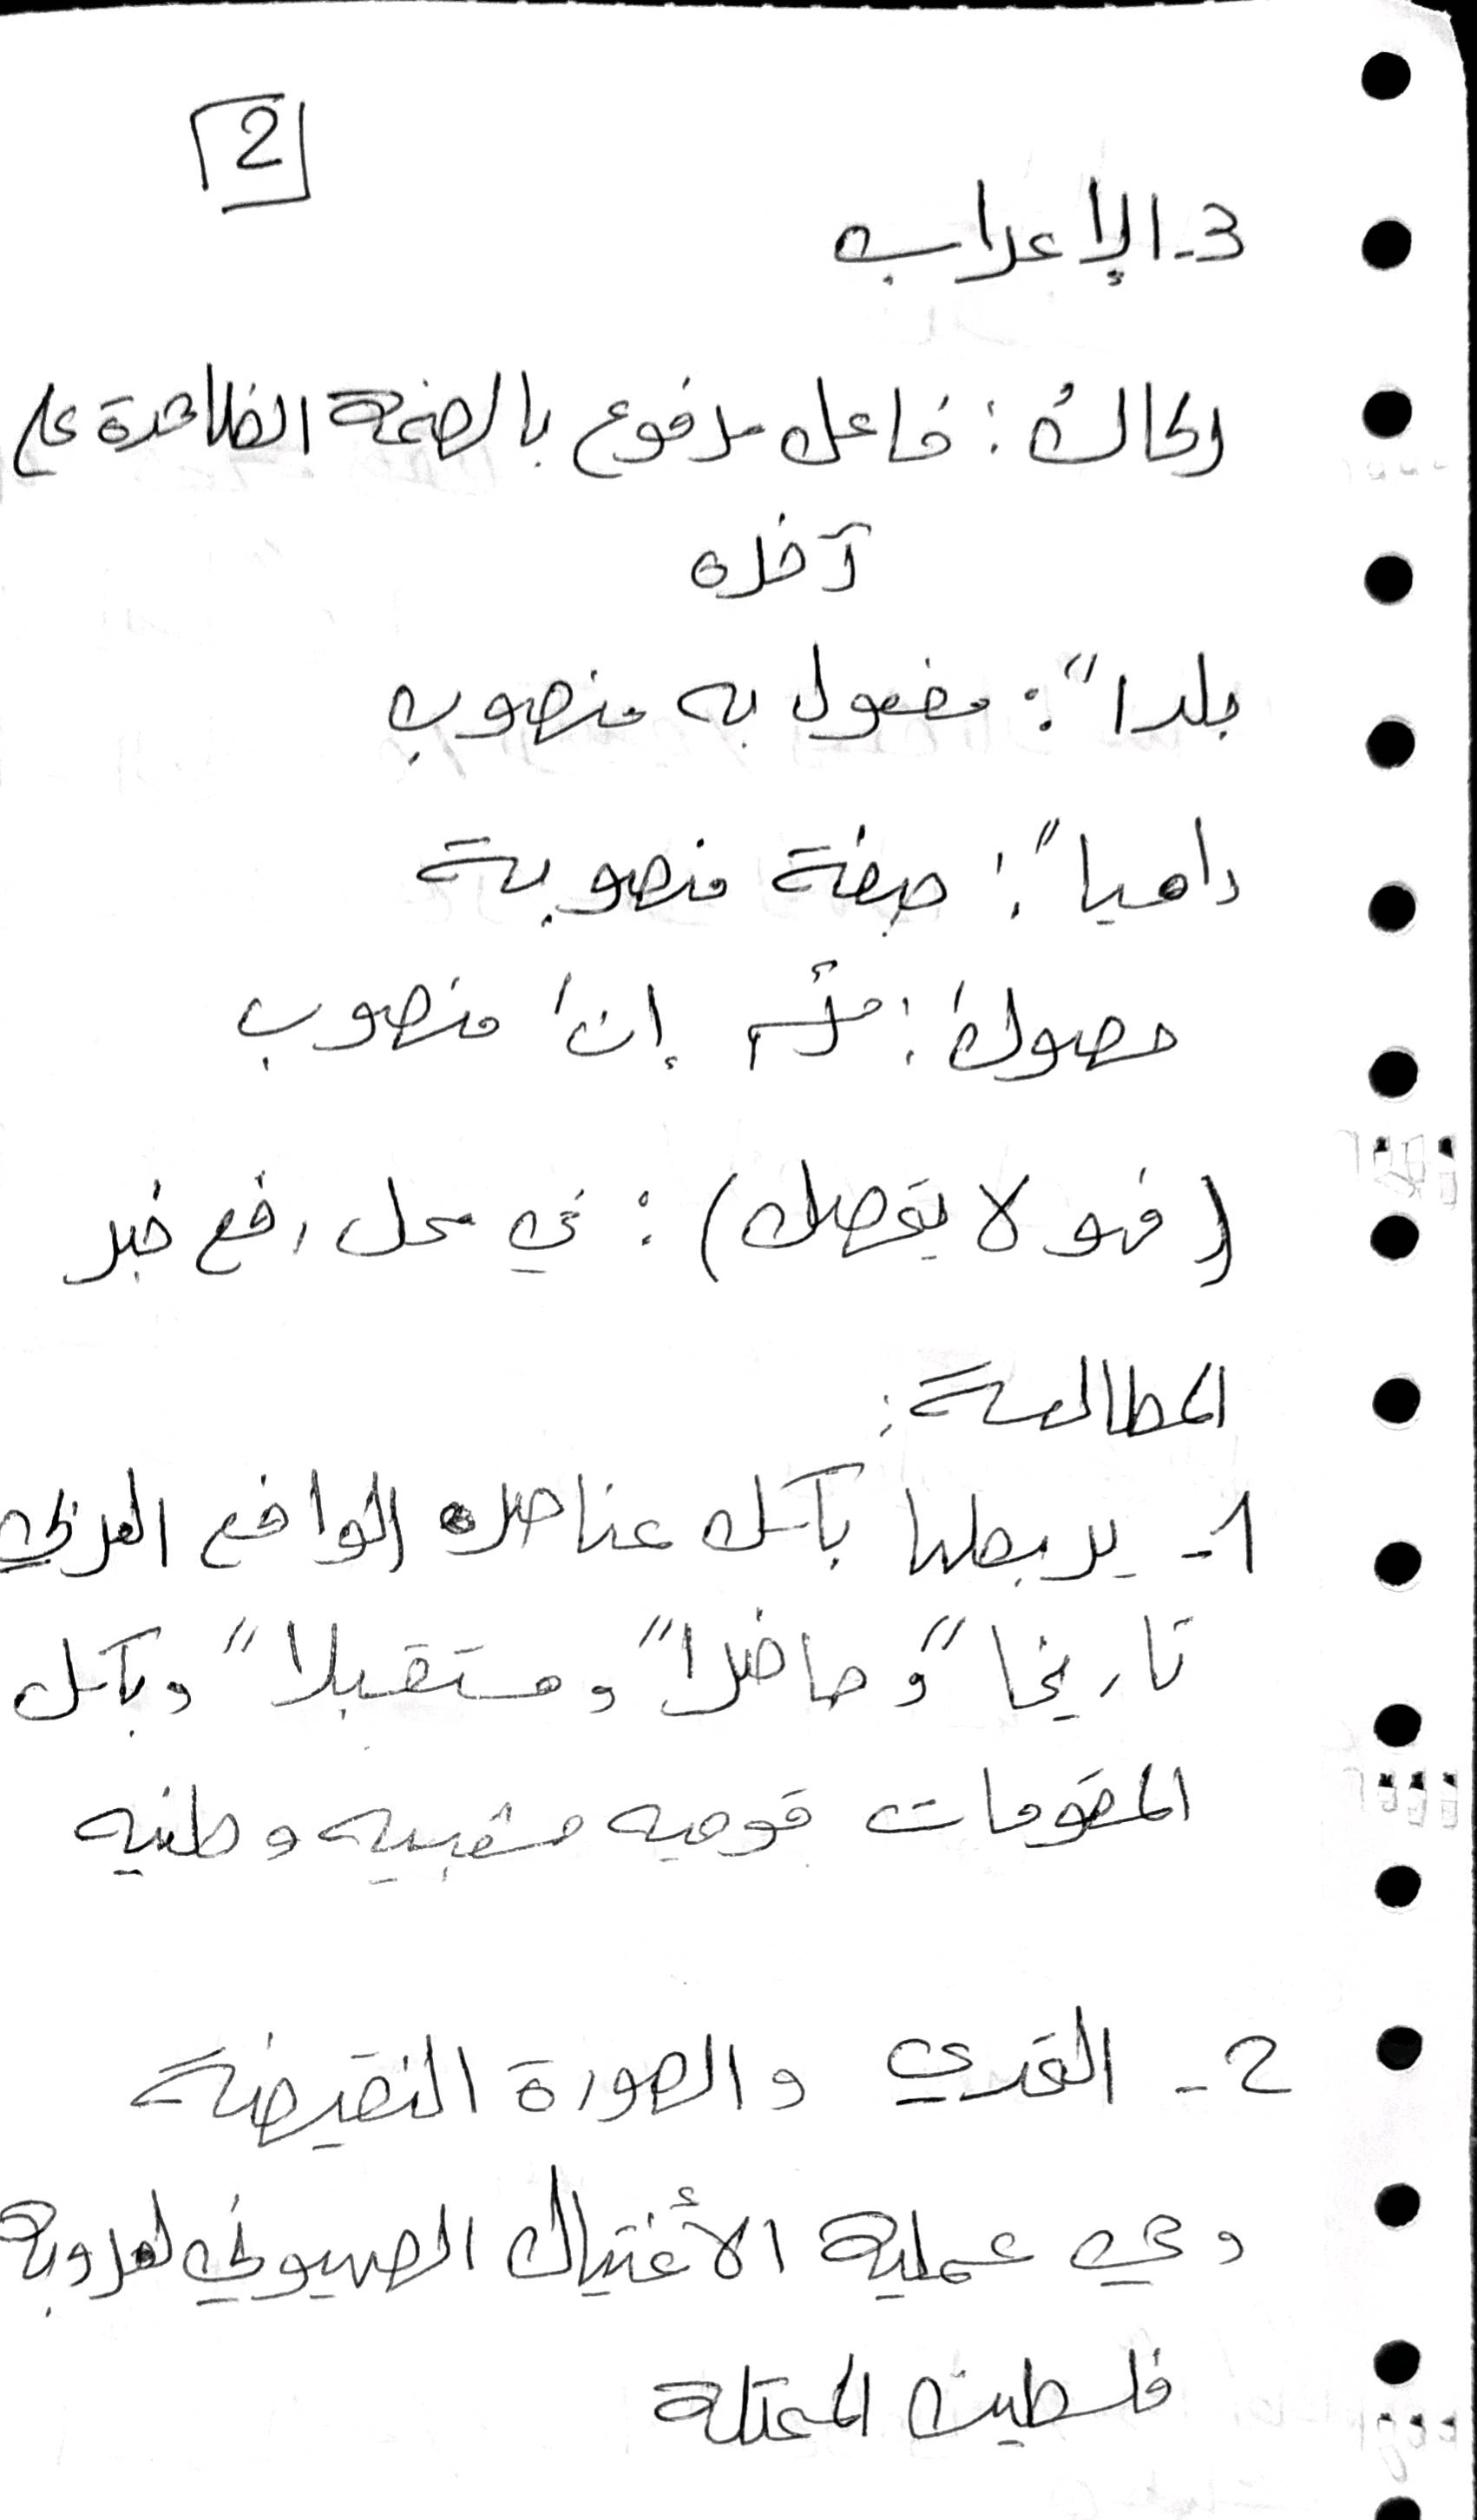 2
3- الإعراب
ركابُ : فاعل مرفوع بالضمة الظاهرة على
آخره
بلداً : مفعول به منصوب
دامياً : صفة منصوبة
حصونَ : اسم إنَّ منصوب
( فهو لا يقهرك ) : في محل رفع خبر
المطالعة :
1- يربطها بكل عناصره الواقع العربي
تاريخاً وحاضراً ومستقبلاً وبكل
المقومات قومية شعبيه وطنيه
2- التحدي والصورة النقيضة
وهي عملية الأغتيال الصهيوني لعروبة
فلسطين المحتلة